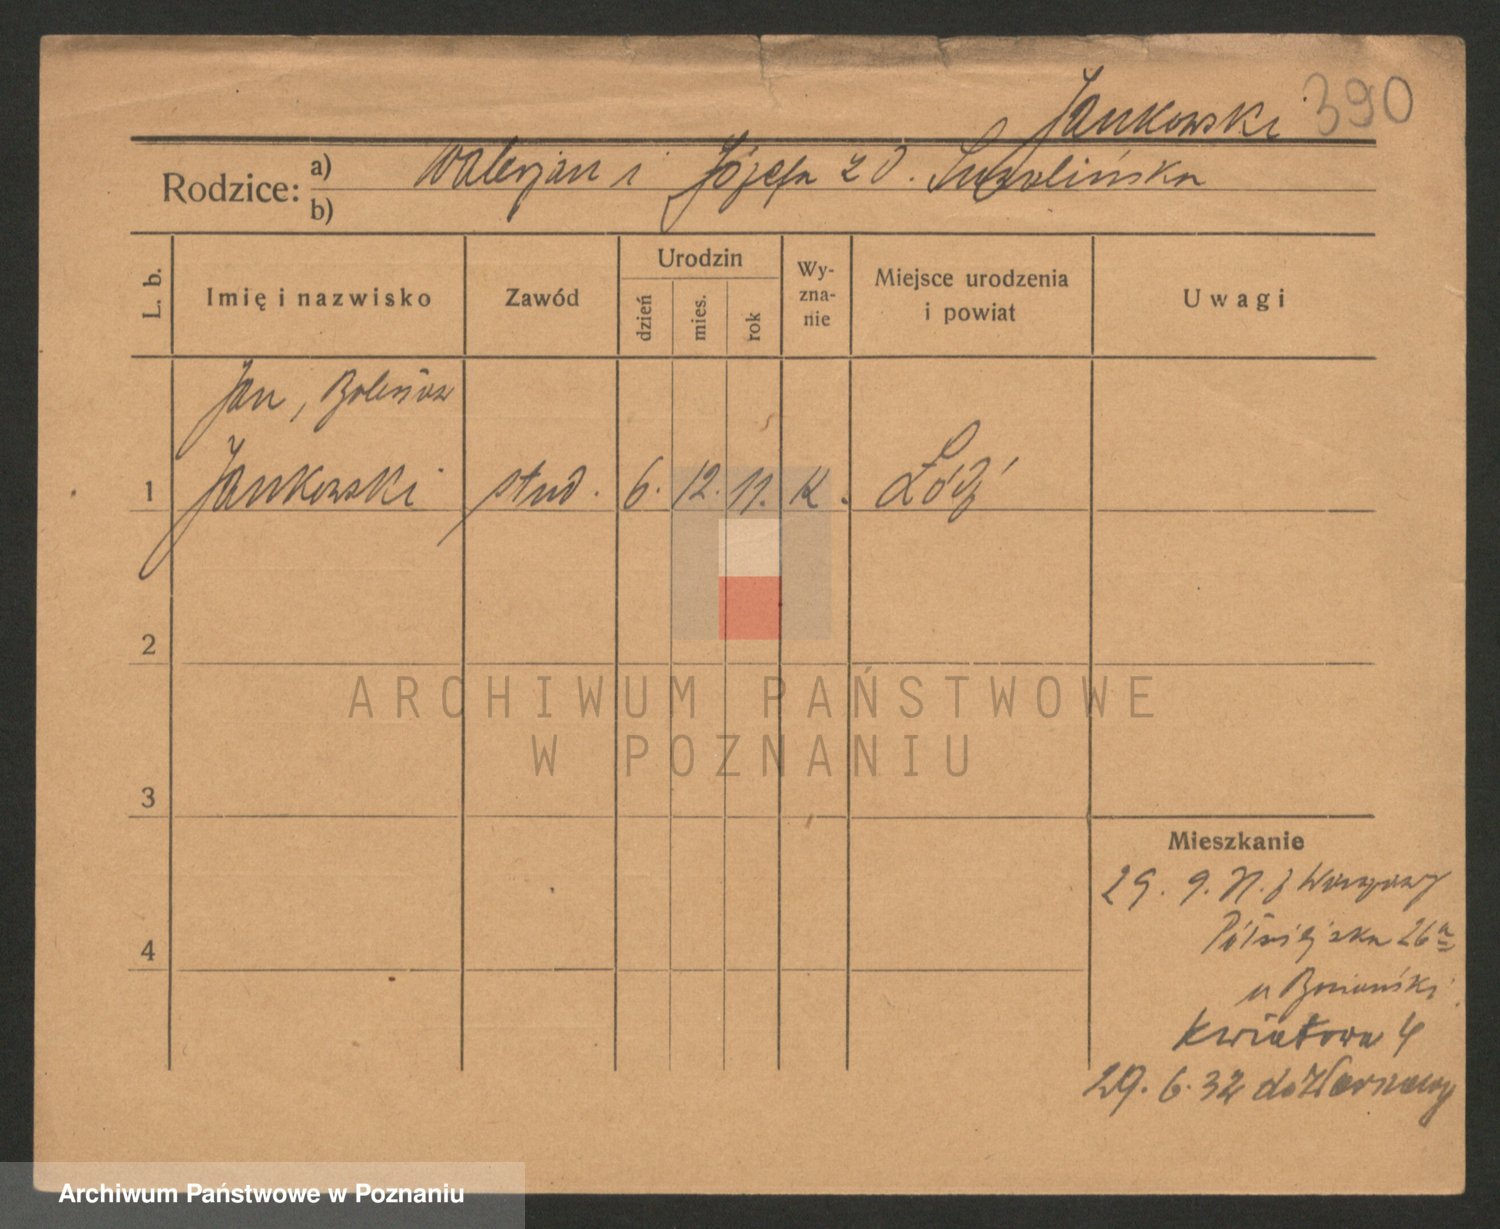 Jankowski 390
Rodzice: a) Walerjan i Józefa z d.
b)
L. b.
Imię i nazwisko
Zawód
Urodzin
dzień
mies.
rok
Wy-
zna-
nie
Miejsce urodzenia
i powiat
Uwagi
Jan, Bolesław
1 Jankowski stud. 6. 12. 11. K. Łódź
2
ARCHIWUM PAŃSTWOWE
W POZNANIU
3
Mieszkanie
29. 9. 31. z Warszawy
26a
u
4
Kwiatowa 4
29. 6. 32 do Warszawy
Archiwum Państwowe w Poznaniu